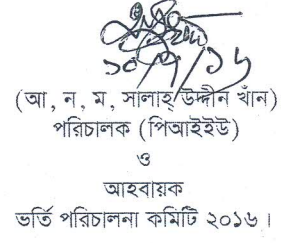 ১০/৭/১৬
(আ, ন, ম, সালাহ্ উদ্দীন খাঁন)
পরিচালক (পিআইইউ)
ও
আহবায়ক
ভর্তি পরিচালনা কমিটি ২০১৬।